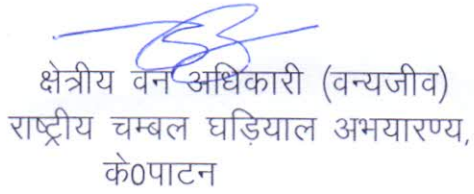 क्षेत्रीय वन अधिकारी (वन्यजीव)
राष्ट्रीय चम्बल घड़ियाल अभयारण्य,
के0पाटन